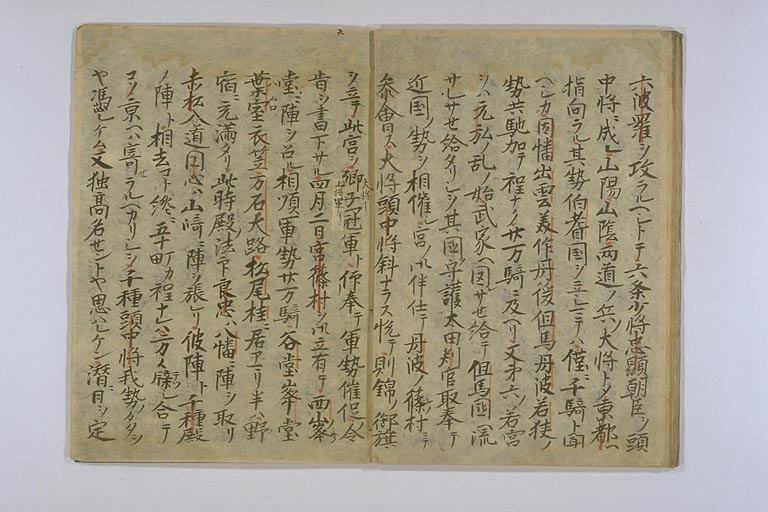 六波羅ヲ攻ラルヘシトテ六条少将忠顕朝臣ヲ頭
中将ニ成レ山陽山陰両道ノ兵ノ大将トメ京都ヘ
指向ラル其勢伯耆国ヲ立シニテハ僅ニ千騎ト聞
ヘシカ因幡出雲美作丹後但馬丹波若狭ノ
勢共馳加テ程ナク廿万騎ニ及ヘリ又第六ノ若宮
ハ元弘ノ乱ノ始武家ヘ囚サセ給テ但馬国ヘ流
サレサセ給タリシヲ其国ノ守護太田判官取奉テ
近国ノ勢ヲ相催シ宮ニ伴仕テ丹波ノ篠村ニテ
参會ス大将頭中将斜ナラス悦テ則錦ノ御旗
ヲ立テ此宮ヲ卿子冠軍ト仰奉テ軍勢催促ノ令
肯ヲ書下サル四月二日宮篠村ヲ立有テ西峯
堂ニ陣ヲ召ル相順軍勢廿万騎谷堂峯堂
葉室衣笠万石大路松尾桂ニ居アマリ半ハ野
宿ニ充満タリ此時殿法印良忠ハ八幡ニ陣ヲ取リ
赤松入道円心ハ山崎ニ陣ヲ張レリ彼陣ト千種殿
ノ陣ト相去コト纔ニ五十町カ程ナレハ方々牒合テ
コソ京ヘハ寄ラルヘカリシヲ千種頭中将我勢ノ多ヲ
ヤ憑レケム又独高名セントヤ思ハレケン潜ニ日ヲ定